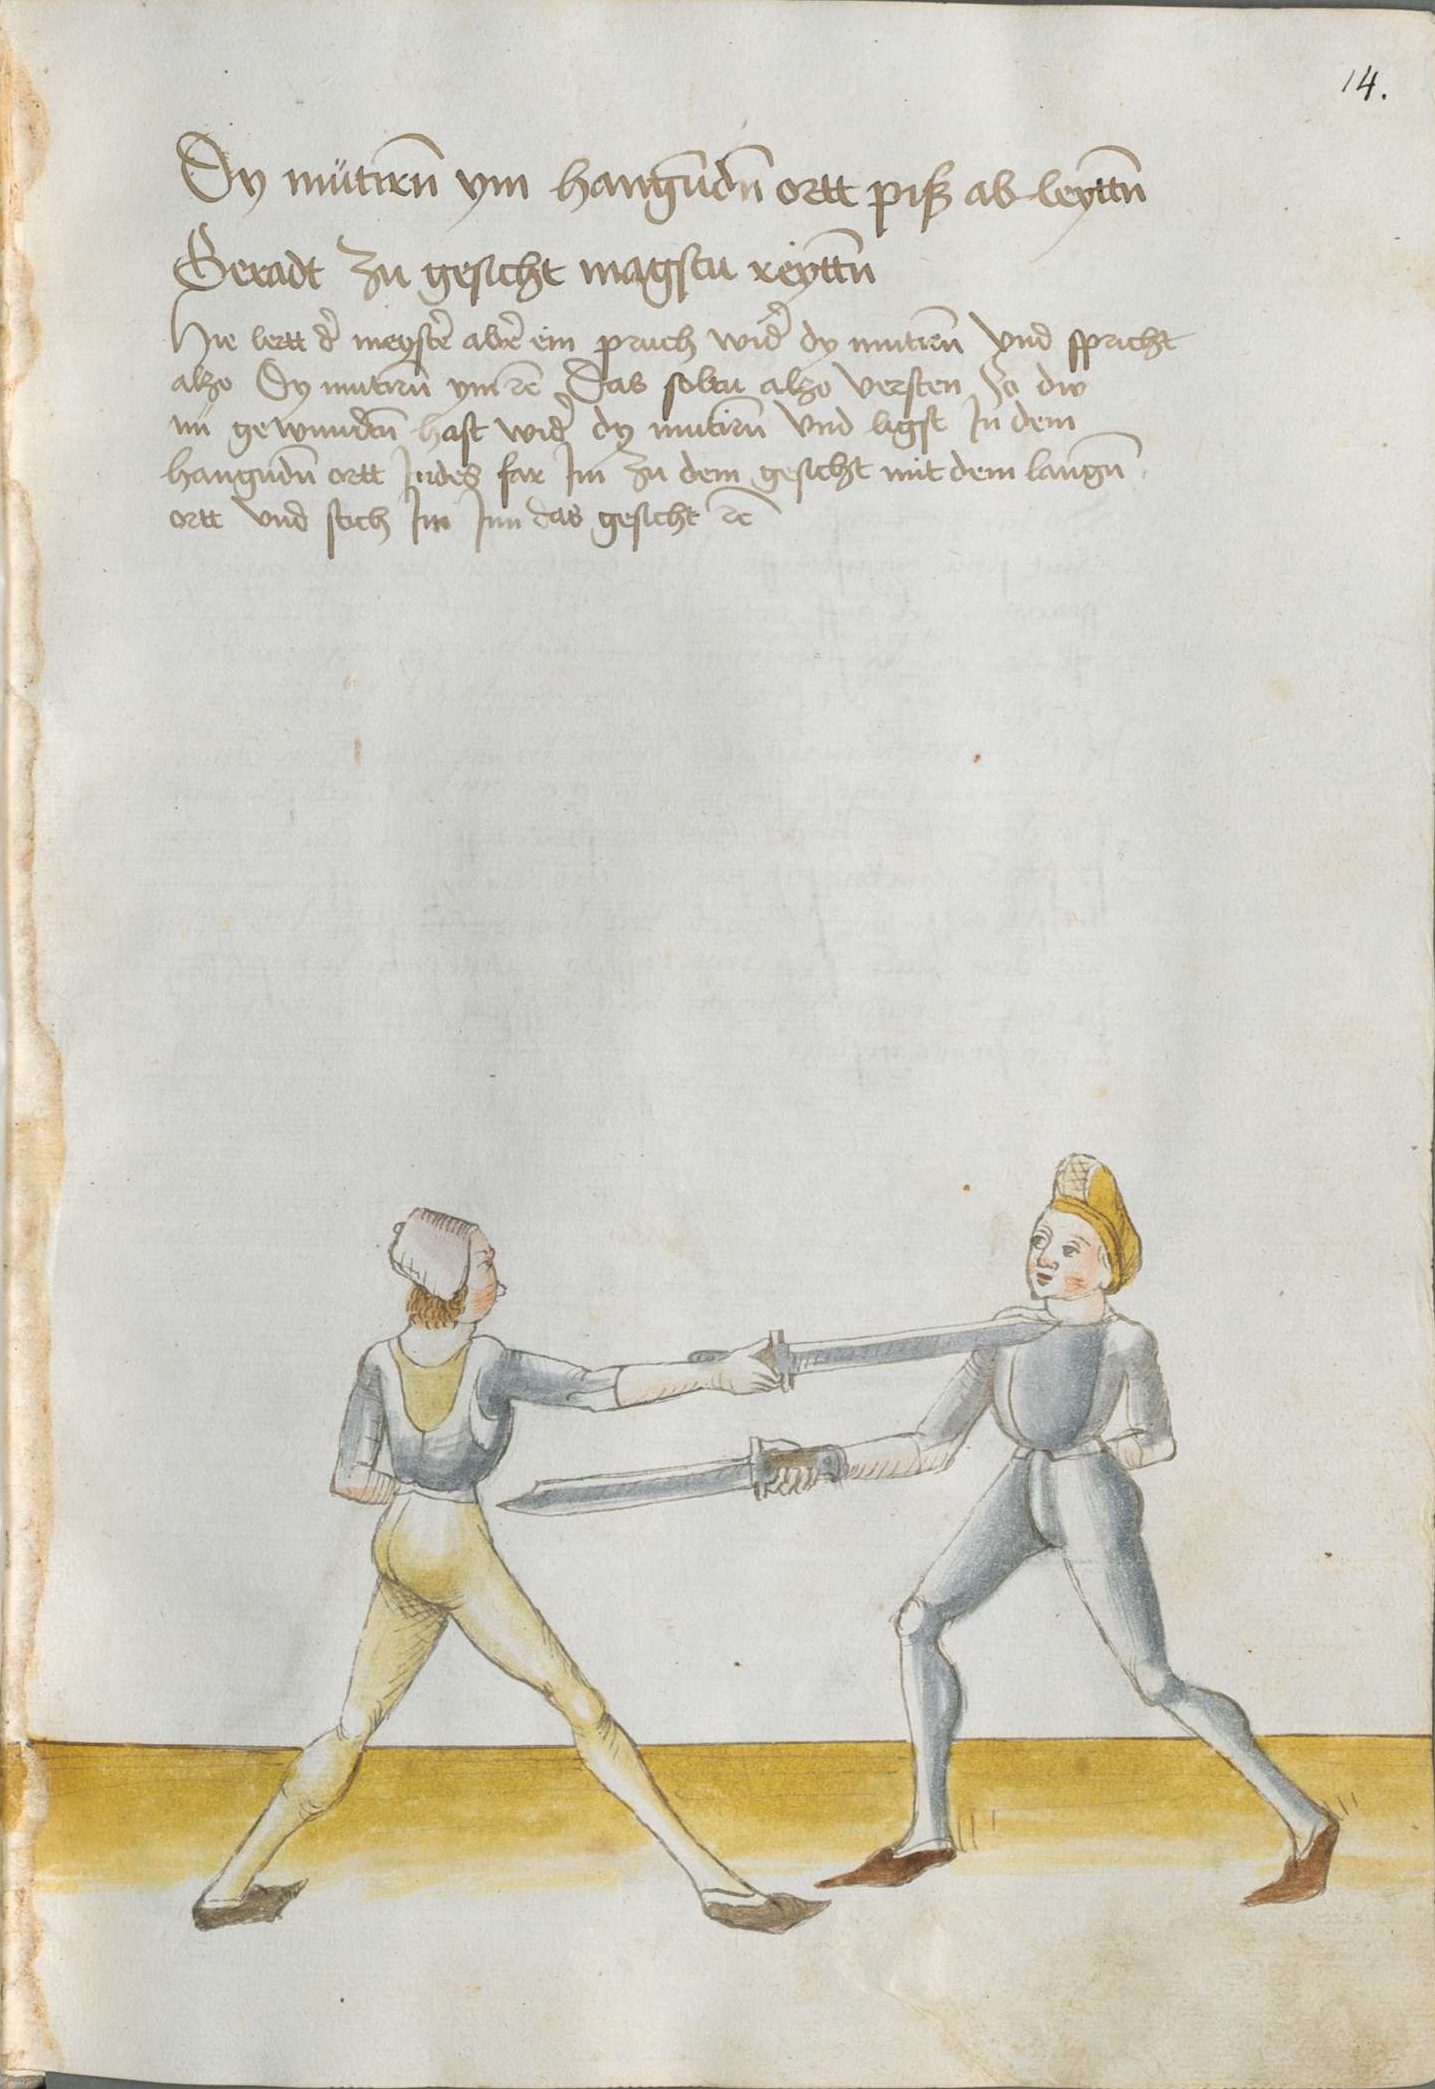 14.
Dy mütirn̄ ym hangūdn̄ ortt piß ab leyttn̄
Geradt zu gesicht magstu reyttn̄
Hie lertt d̉ meyst̉ ab̉ ein pruch wid̉ dy mutirn̄ vnd spricht
alzo Dy mutirn̄ ym rc̄ Das soltu alzo versten So dw
nü gewundn̄ hast wid̉ dy mutirn̄ vnd ligst In dem
hangndn̄ ortt Indes far Im zu dem gesicht mit dem langn̄
ortt vnd stich Im Inn das gesicht rc̄